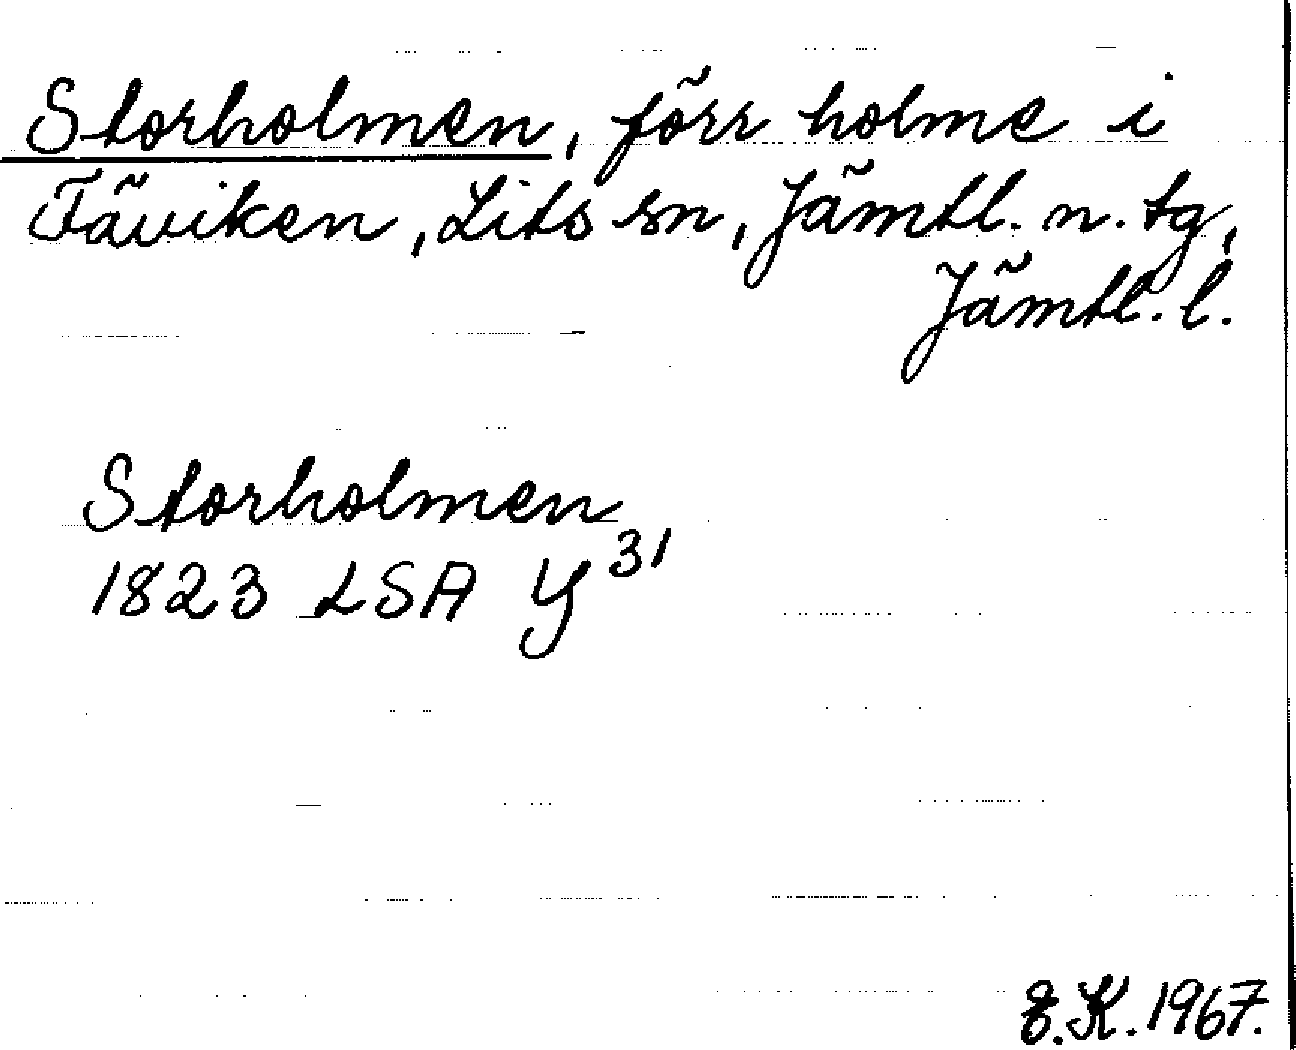 Storholmen, förr holme i
Täviken, Lits sn, Jämtl. n. tg,
Jämtl. l.
Storholmen
1823 LSA Y 31
K. 1967.